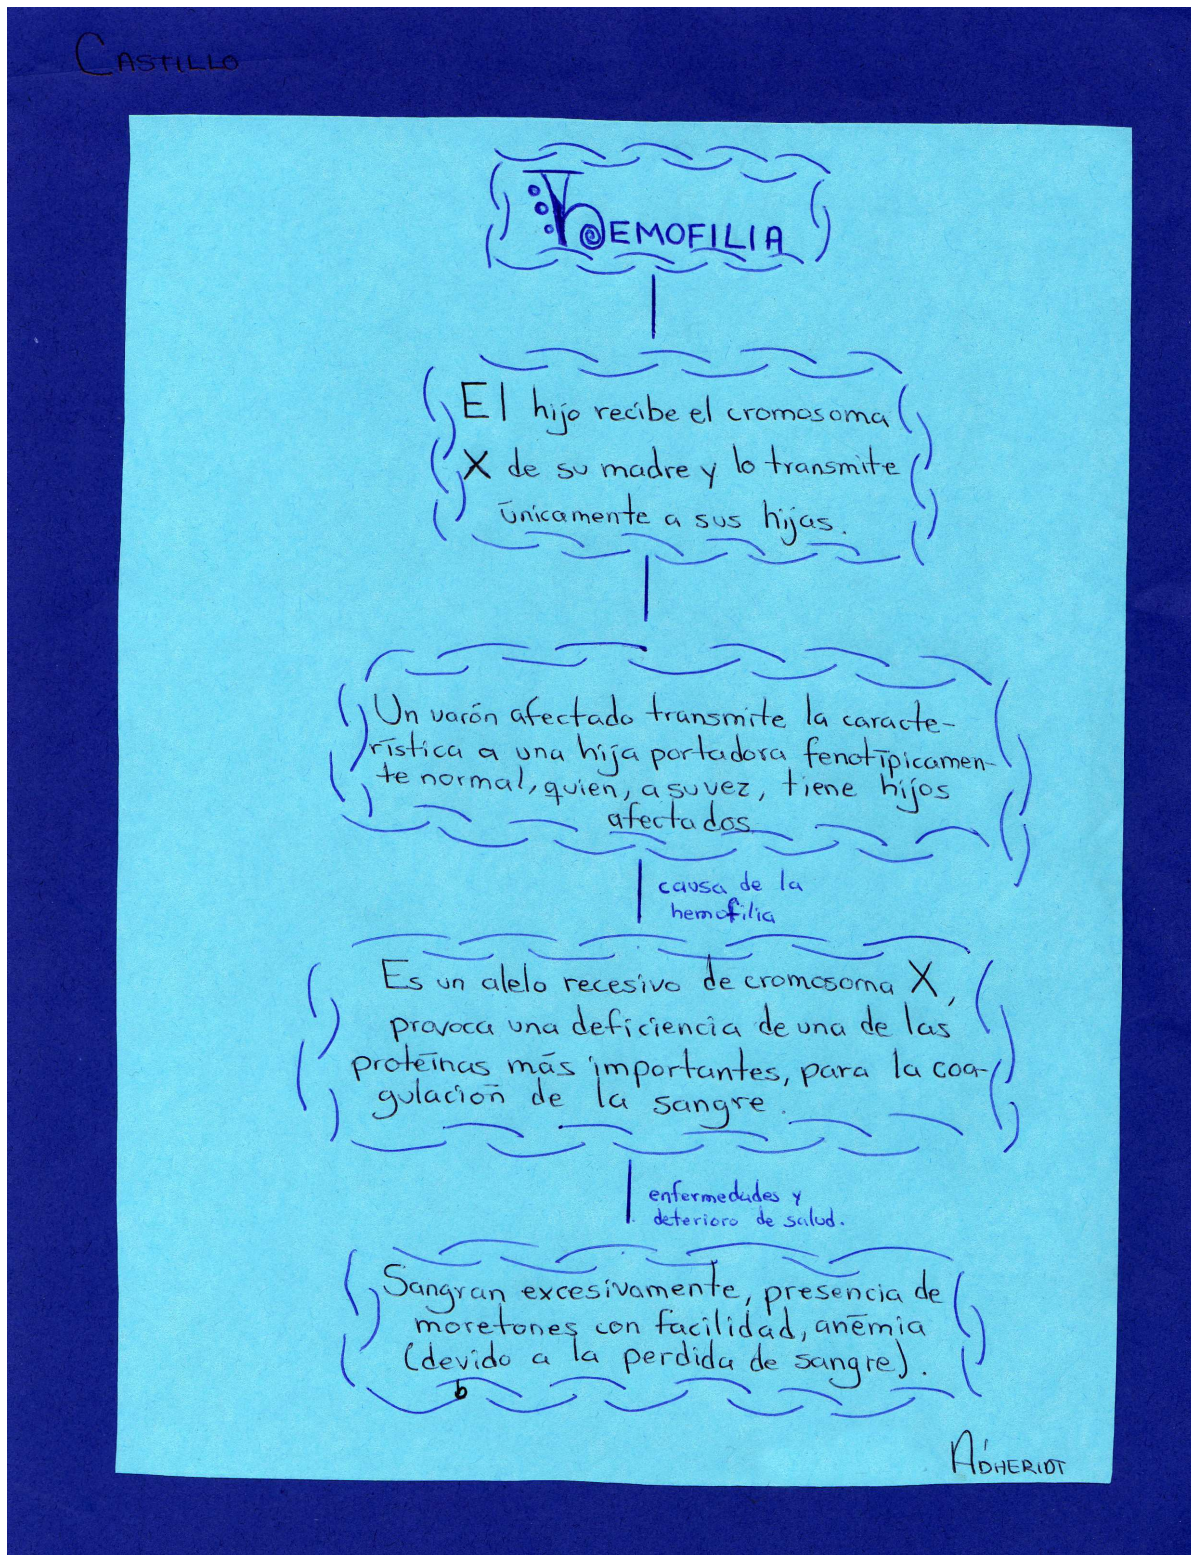 CASTILLO
HEMOFILIA
El hijo recibe el cromosoma
X de su madre y lo transmite
únicamente a sus hijas.
Un varón afectado transmite la caracte-
rística a una hija portadora fenotípicamen-
te normal, quien, a su vez, tiene hijos
afectados
causa de la
hemofilia
Es un alelo recesivo de cromosoma X,
provoca una deficiencia de una de las
proteínas más importantes, para la coa-
gulación de la sangre.
enfermedades y
deterioro de salud.
Sangran excesivamente, presencia de
moretones con facilidad, anémia
(devido a la perdida de sangre).
b